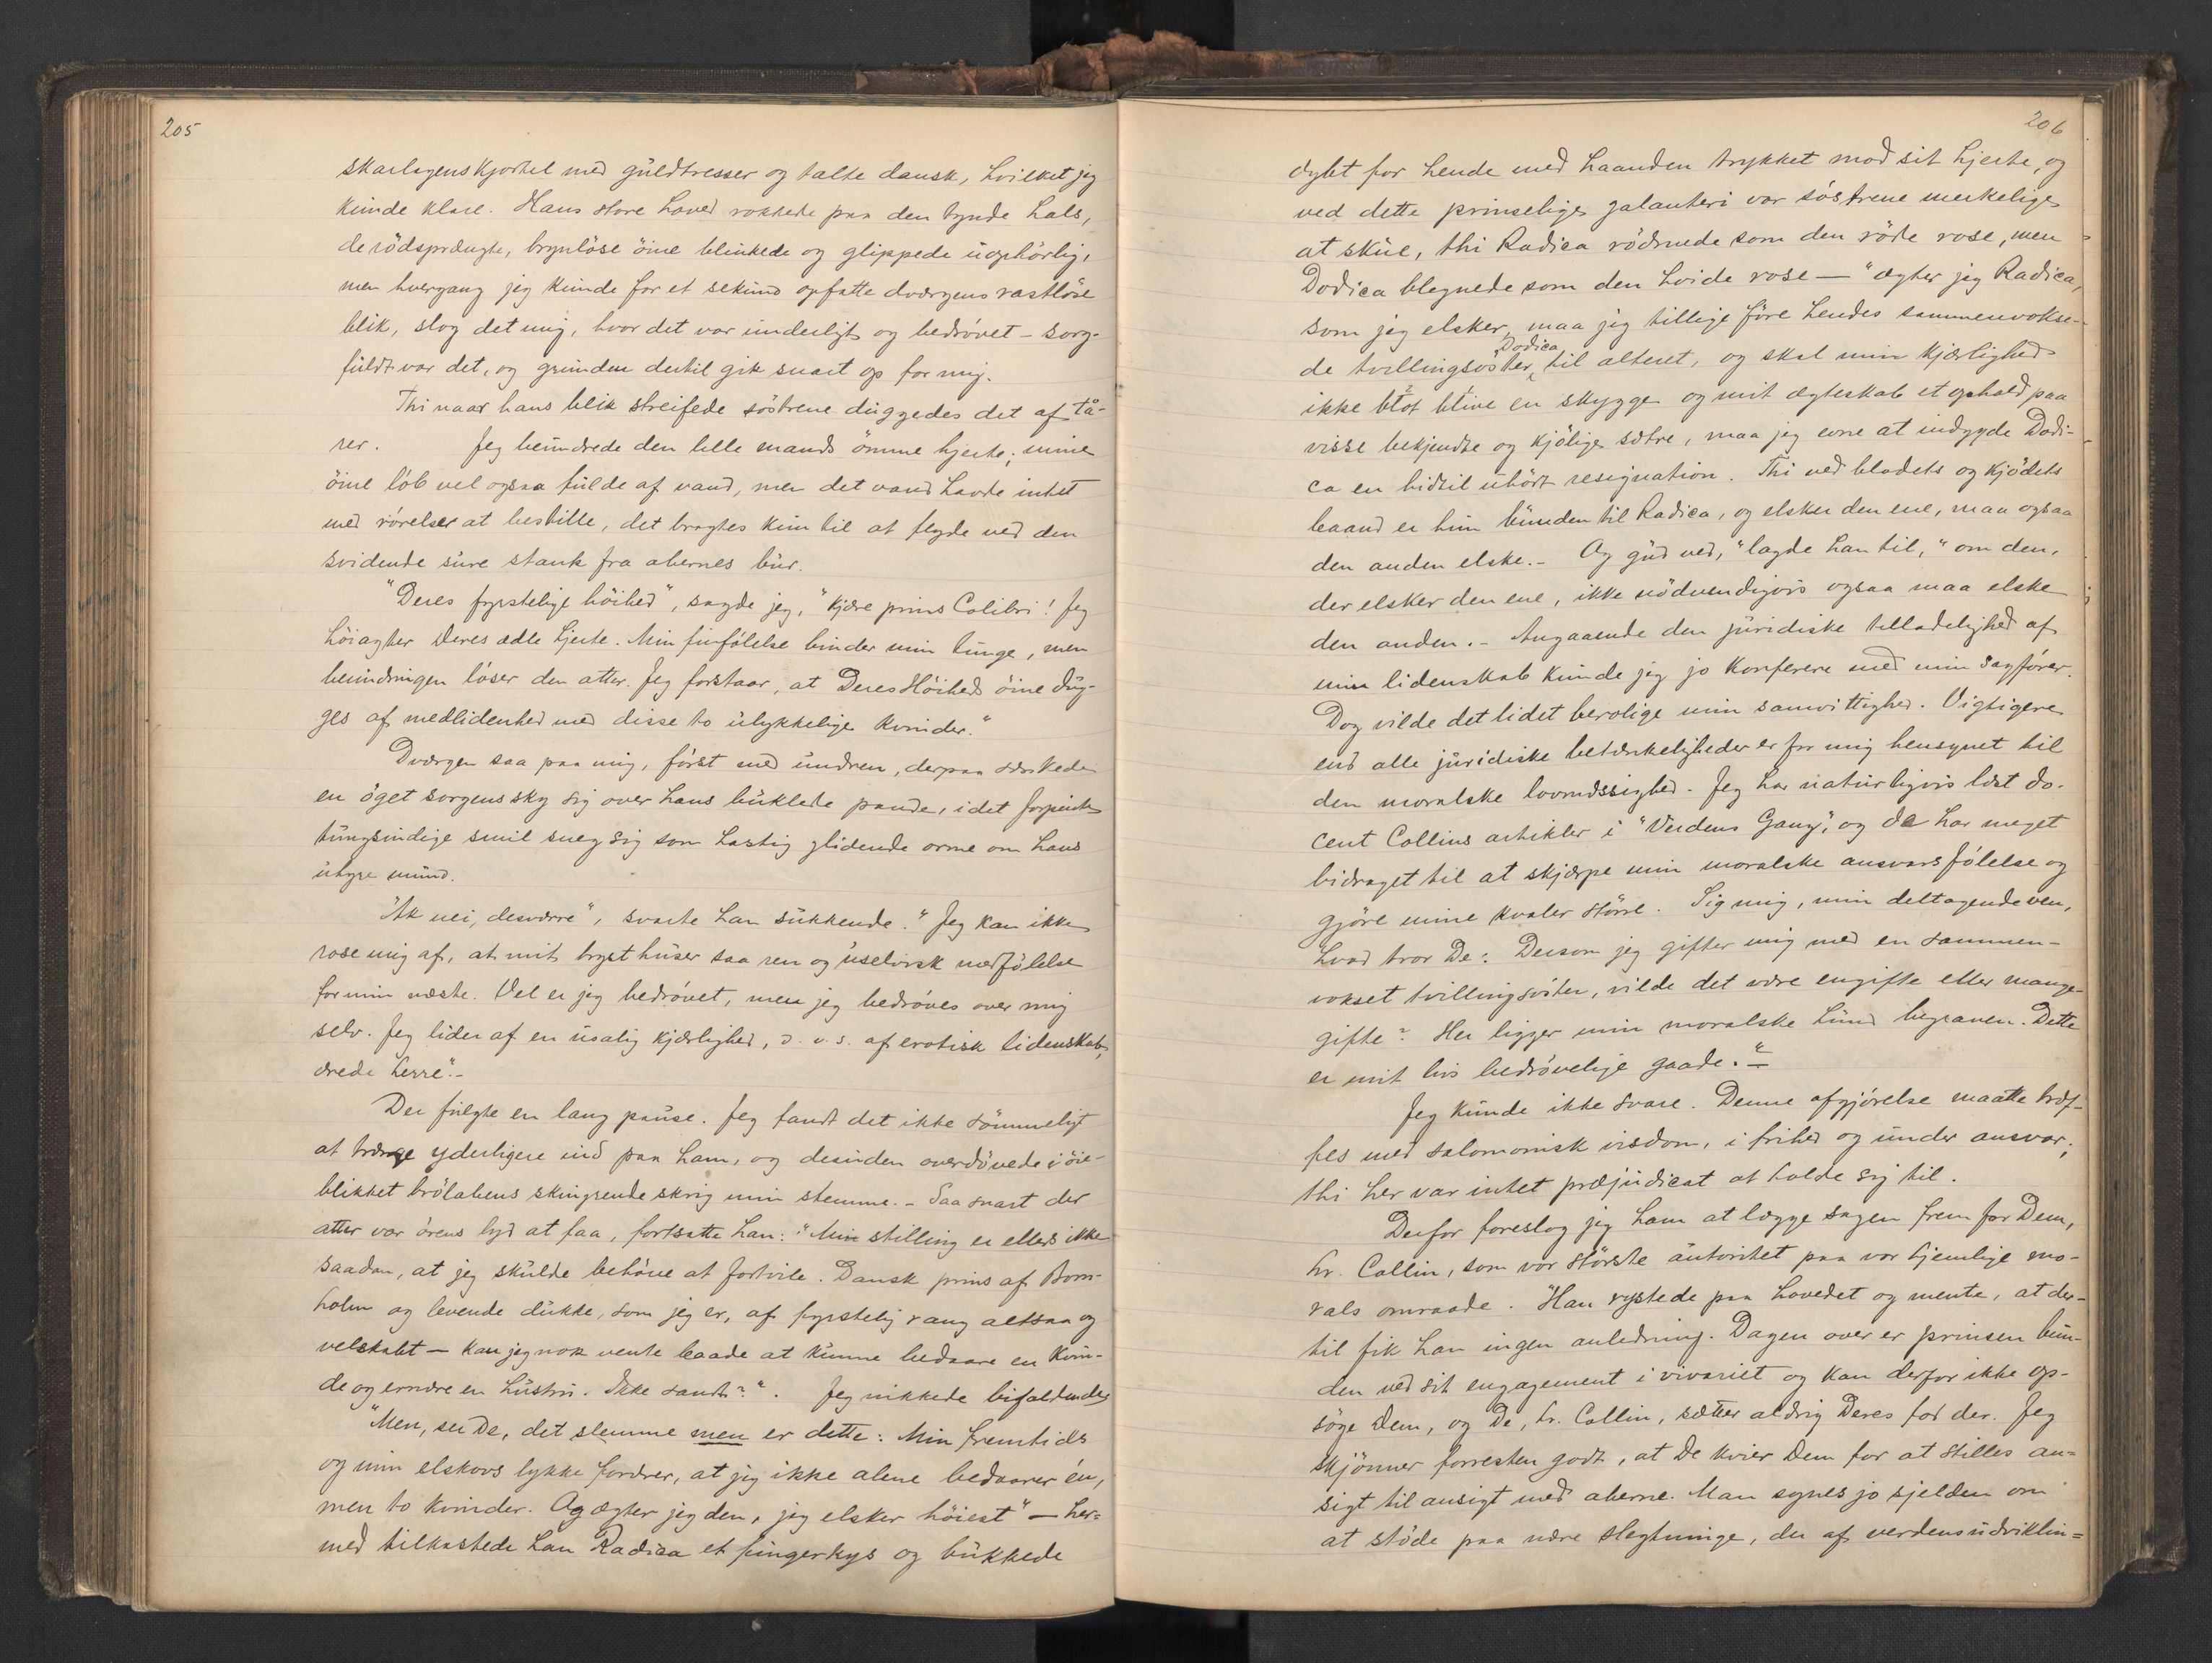 205
skarlagenskjortel med guldtresser og talte dansk, hvilket jeg
kunde klare. Hans store hoved rokkede paa den tynde hals,
de rödsprængte, brynlöse öine blinkede og glippede uophörlig,
men hvergang jeg kunde for et sekund opfatte dværgens rastlöse
blik, slog det mig, hvor det var underligt og bedrövet – sorg-
fuldt var det, og grunden dertil gik snart op for mig.
Thi naar hans blik streifede söstrene duggedes det af tå-
rer. Jeg beundrede den lille mands ömme hjerte; mine
öine löb vel ogsaa fulde af vand, men det vand havde intet
med rörelser at bestille, det bragtes kun til at flyde ved den
svidende sure stank fra abernes bur.
"Deres fyrstelige höihed", sagde jeg, "kjære prins Colibri! Jeg
höiagter Deres ædle hjerte. Min finfölelse binder min tunge, men
beundringen löser den atter. Jeg forstaar, at Deres Höiheds öine dug-
ges af medlidenhed med disse to ulykkelige kvinder."
Dværgen saa paa mig, först med undren, derpaa sænkede
en öget sorgens sky sig over hans buklede pande, idet forpint
tungsindige smil sneg sig som hastig glidende orme om hans
uhyre mund.
"Ak nei, desværre", svarte han sukkende. "Jeg kan ikke
rose mig af, at mit bryst huser saa ren og uselvisk medfölelse
for min næste. Vel er jeg bedrövet, men jeg bedröves over mig
selv. Jeg lider af en usalig kjærlighed, d. v. s. af erotisk lidenskab,
ærede herre".–
Der fulgte en lang pause. Jeg fandt det ikke sömmeligt
at trænge yderligere ind paa ham, og desuden overdövede i öie-
blikket brölabens skingrende skrig min stemme. – Saa snart der
atter var örens lyd at faa, fortsatte han: "Min stilling er ellers ikke
saadan, at jeg skulde behöve at fortvile. Dansk prins af Born-
holm og levende dukke, som jeg er, af fyrstelig rang altsaa og
velskabt – kan jeg nok vente baade at kunne bedaare en kvin-
de og ernære en hustru. Ikke sandt?". Jeg nikkede bifaldende
"Men, ser De, det slemme men er dette: Min fremtids
og min elskovs lykke fordrer, at jeg ikke alene bedaarer én,
men to kvinder. Og ægter jeg den, jeg elsker höiest" – her-
med tilkastede han Radica et fingerkys og bukkede
206
dybt for hende med haanden trykket mod sit hjerte, og
ved dette prinselige galanteri var söstrene merkelige
at skue, thi Radica rödmede som den röde rose, men
Dodica blegnede som den hvide rose – "ægter jeg Radica,
som jeg elsker, maa jeg tillige före hendes sammenvokse-
Dodica
de tvillingsöster til alteret, og skal min kjærlighed
ikke blot blive en skygge og mit ægteskab et ophold paa
visse bekjendte og kjölige sætre, maa jeg evne at indgyde Dodi-
ca en hidtil uhört resignation. Thi ved blodets og kjödets
baand er hun bunden til Radica, og elsker den ene, maa ogsaa
den anden elske. – Og gud ved," lagde han til, "om den,
der elsker den ene, ikke nödvendigvis ogsaa maa elske
den anden. – Angaaende den juridiske tilladelighed af
min lidenskab kunde jeg jo konferere med min sagförer.
Dog vilde det lidet berolige min samvittighed. Vigtigere
end alle juridiske betænkeligheder er for mig hensynet til
den moralske lovmæssighed. Jeg har naturligvis læst do-
cent Collins artikler i "Verdens Gang", og de har meget
bidraget til at skjærpe min moralske ansvarsfölelse og
gjöre mine kvaler större. Sig mig, min deltagende ven,
hvad tror De: Dersom jeg gifter mig med en sammen-
vokset tvillingsöster, vilde det være engifte eller mange-
gifte? Her ligger min moralske hund begraven. Dette
er mit livs bedrövelige gaade." –
Jeg kunde ikke svare. Denne afgjörelse maatte træf-
fes med salomonisk visdom, i frihed og under ansvar;
thi her var intet præjudicat at holde sig til.
Derfor foreslog jeg ham at lægge sagen frem for Dem,
hr. Collin, som vor störste autoritet paa vor hjemlige mo-
rals omraade. Han rystede paa hovedet og mente, at der-
til fik han ingen anledning. Dagen over er prinsen bun-
den ved sit engagement i vivariet og kan derfor ikke op-
söge Dem, og De, hr. Collin, sætter aldrig Deres fod der. Jeg
skjönner forresten godt, at De kvier Dem for at stilles an-
sigt til ansigt med aberne. Man synes jo sjelden om
at stöde paa nære slegtninge, der af verdensudviklin-